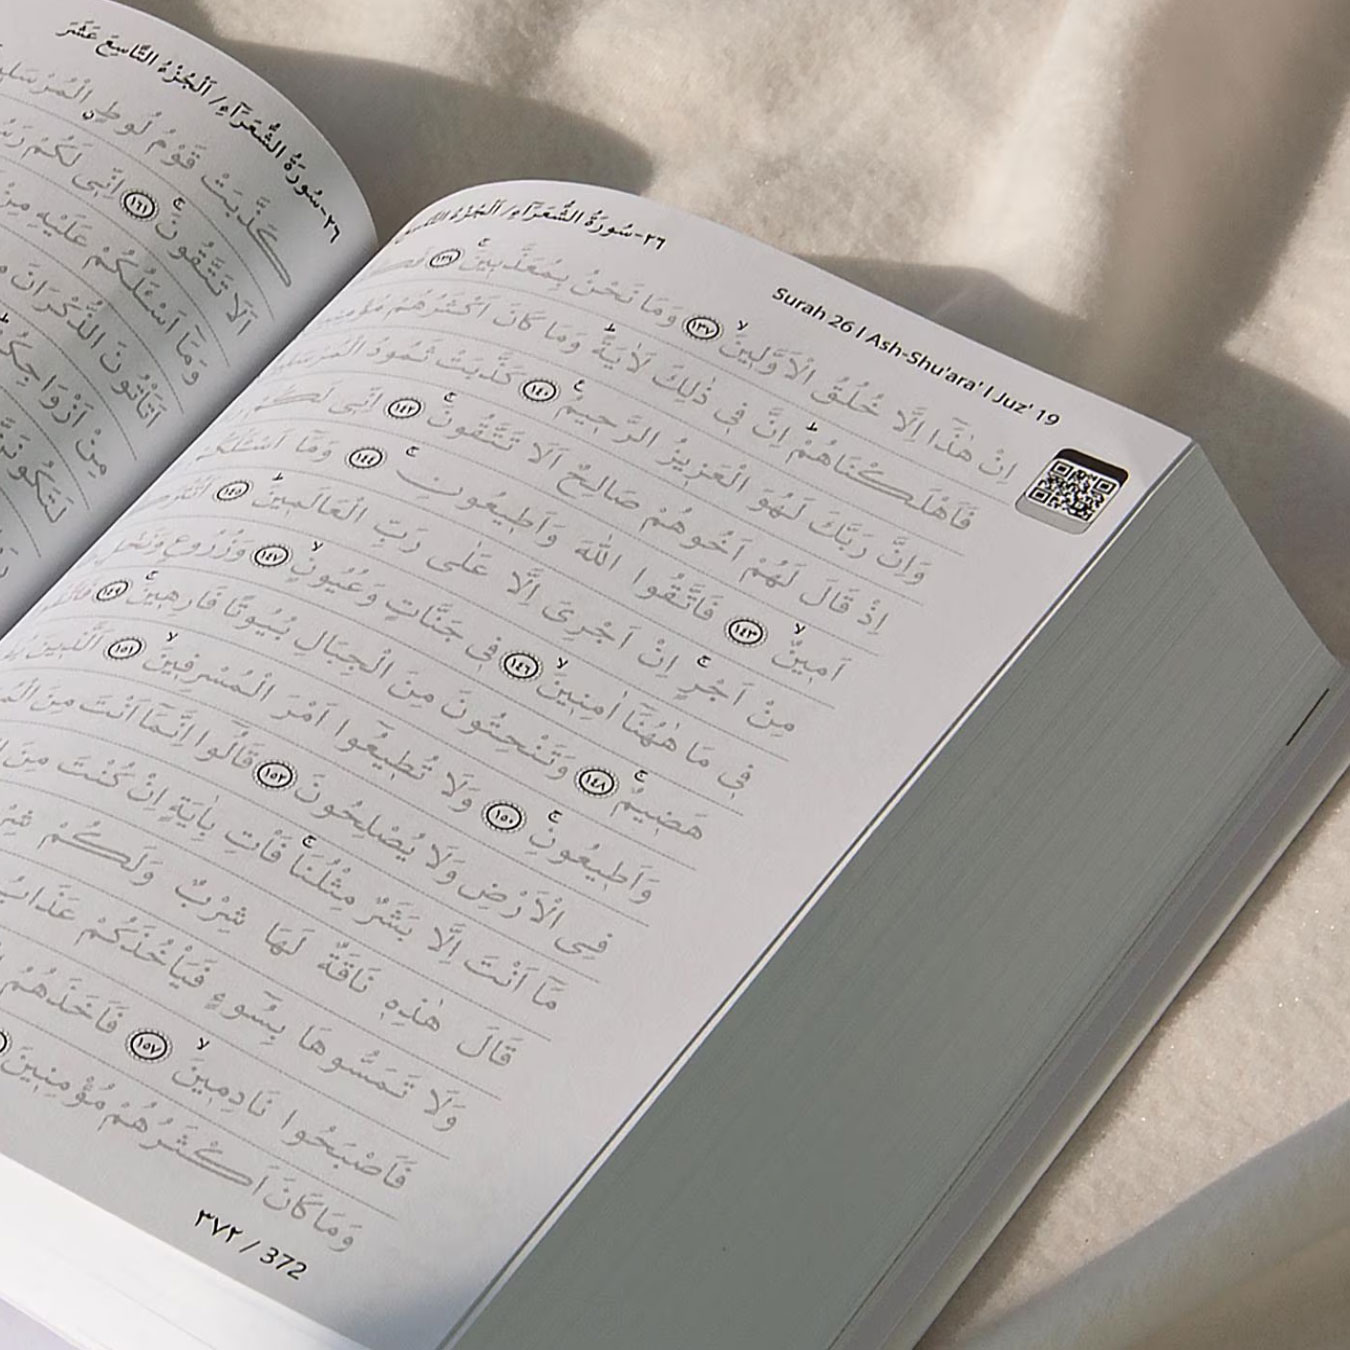 ٢٦-سُورَةُ الشُّعَرَاءِ/ اَلْجُزْءُ
Surah 26 I Ash-Shu'ara' I Juz' 19
اِنْ هٰذَٓا اِلَّا خُلُقُ الْاَوَّلٖينَۙ ﴿١٣٧﴾ وَمَا نَحْنُ بِمُعَذَّبٖينَۚ ﴿١٣٨﴾
فَاَهْلَكْنَاهُمْؕ اِنَّ فٖى ذٰلِكَ لَاٰيَةًؕ وَمَا كَانَ اَكْثَرُهُمْ
وَاِنَّ رَبَّكَ لَهُوَ الْعَزٖيزُ الرَّحٖيمُࣖ ﴿١٤٠﴾ كَذَّبَتْ ثَمُودُ
اِذْ قَالَ لَهُمْ اَخُوهُمْ صَالِحٌ اَلَا تَتَّقُونَۚ ﴿١٤٢﴾ اِنّٖى لَكُمْ
اَمٖينٌۙ ﴿١٤٣﴾ فَاتَّقُوا اللّٰهَ وَاَطٖيعُونِۚ ﴿١٤٤﴾ وَمَٓا
مِنْ اَجْرٍۚ اِنْ اَجْرِىَ اِلَّا عَلٰى رَبِّ الْعَالَمٖينَؕ ﴿١٤٥﴾
فٖى مَا هٰهُنَٓا اٰمِنٖينَۙ ﴿١٤٦﴾ فٖى جَنَّاتٍ وَعُيُونٍۙ ﴿١٤٧﴾ وَزُرُوعٍ وَنَخْلٍ
هَضٖيمٌۚ ﴿١٤٨﴾ وَتَنْحِتُونَ مِنَ الْجِبَالِ بُيُوتًا فَارِهٖينَۚ ﴿١٤٩﴾
وَاَطٖيعُونِۚ ﴿١٥٠﴾ وَلَا تُطٖيعُٓوا اَمْرَ الْمُسْرِفٖينَۙ ﴿١٥١﴾ اَلَّذٖينَ
فِى الْاَرْضِ وَلَا يُصْلِحُونَ ﴿١٥٢﴾ قَالُٓوا اِنَّمَٓا اَنْتَ مِنَ
مَٓا اَنْتَ اِلَّا بَشَرٌ مِثْلُنَاۚ فَاْتِ بِاٰيَةٍ اِنْ كُنْتَ مِنَ
قَالَ هٰذِهٖ نَاقَةٌ لَهَا شِرْبٌ وَلَكُمْ
وَلَا تَمَسُّوهَا بِسُٓوءٍ فَيَاْخُذَكُمْ عَذَابُ
فَاَصْبَحُوا نَادِمٖينَۙ ﴿١٥٧﴾ فَاَخَذَهُمُ
وَمَا كَانَ اَكْثَرُهُمْ مُؤْمِنٖينَ
٣٧٢ / 372
٢٦-سُورَةُ الشُّعَرَاءِ/ اَلْجُزْءُ التَّاسِعَ عَشَرَ
كَذَّبَتْ قَوْمُ لُوطٍ
اَلَا تَتَّقُونَۚ ﴿١٦١﴾ اِنّٖى لَكُمْ
وَمَٓا اَسْـَٔلُكُمْ عَلَيْهِ مِنْ
اَتَاْتُونَ الذُّكْرَانَ
مِنْ اَزْوَاجِكُمْ